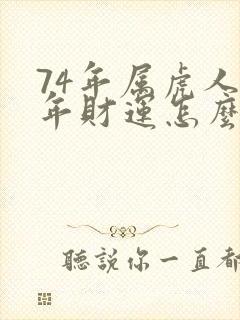 74年属虎人
年财運怎麼
聽説你一直都